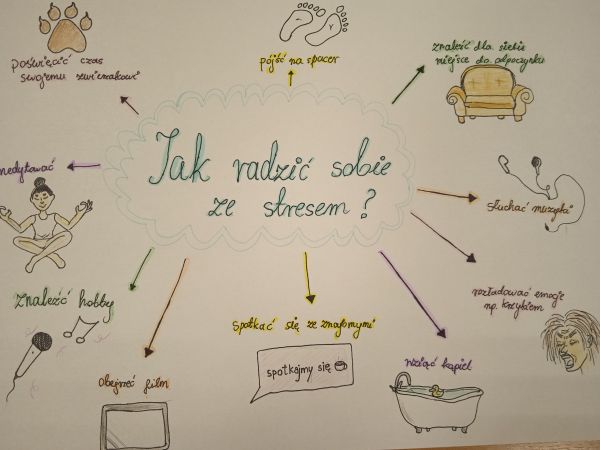 Jak radzić sobie
ze stresem?
pójść na spacer
znaleźć dla siebie
miejsce do odpoczynku
słuchać muzyki
rozładować emocje
np. krzykiem
wziąć kąpiel
spotkać się ze znajomymi
spotkajmy się
obejrzeć film
znaleźć hobby
medytować
poświęcić czas
swojemu zwierzakowi